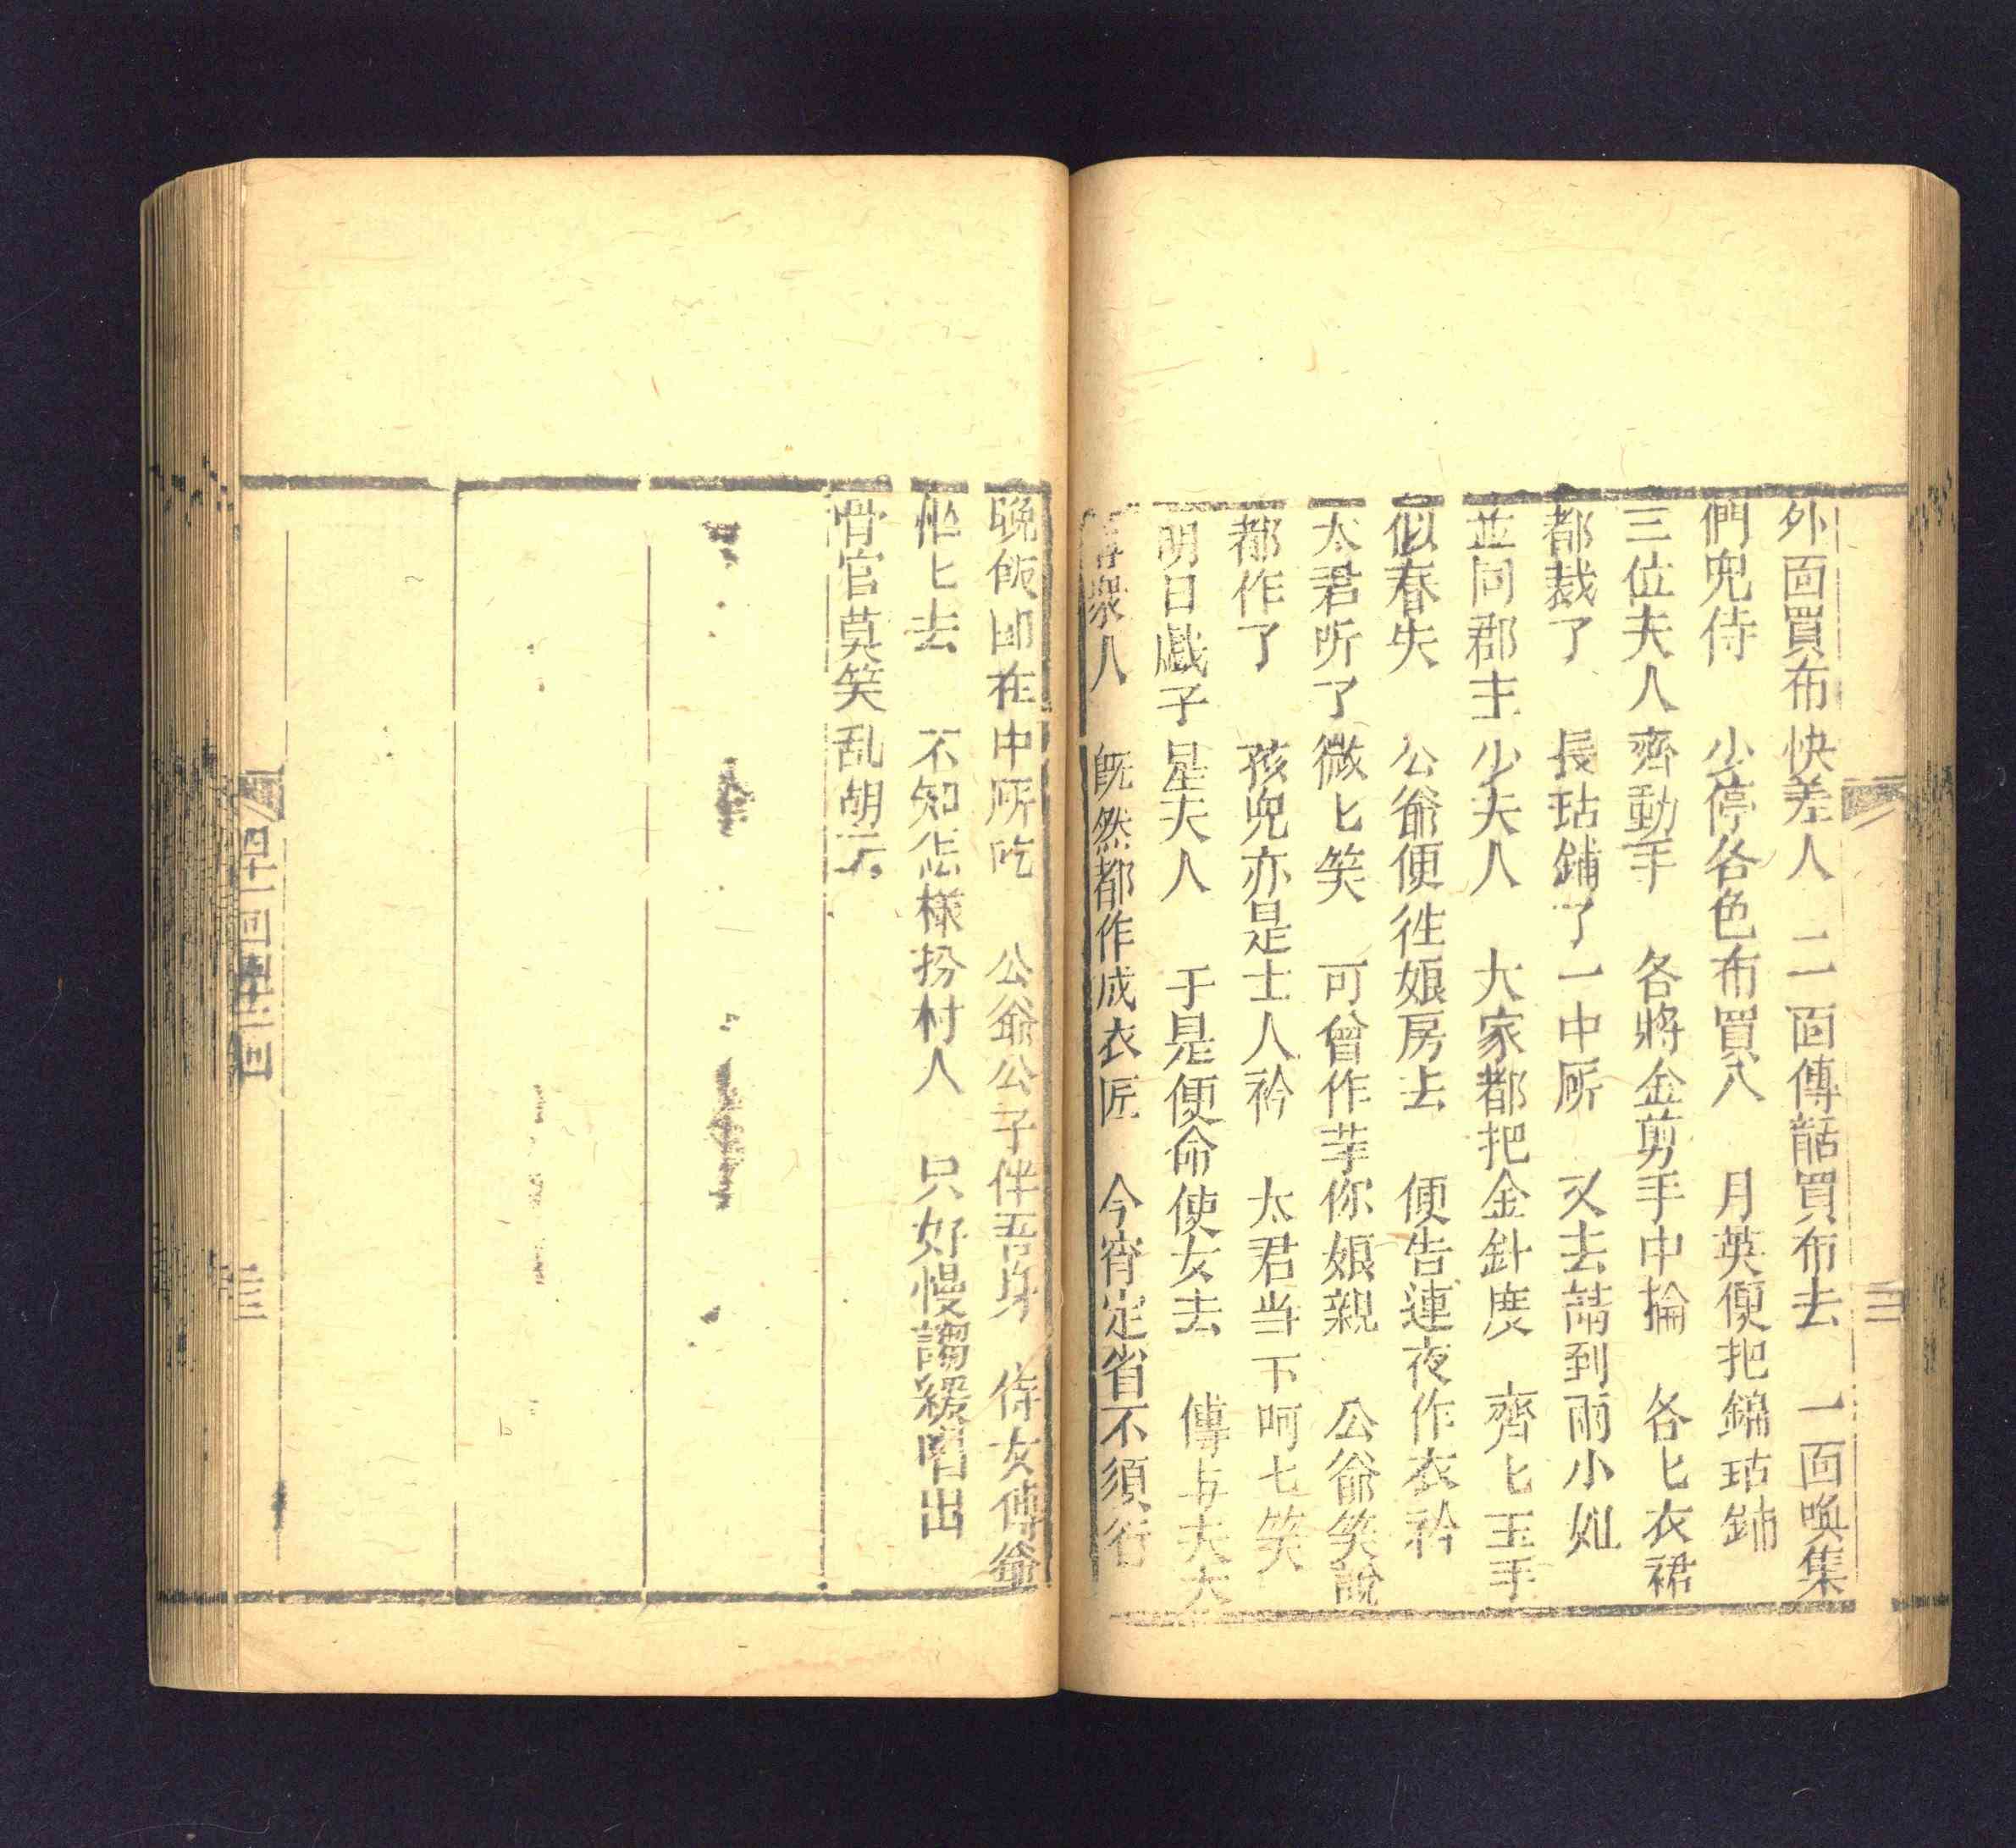 外面買布快差人 二一面傳話買布去 一面喚集
們兜侍 少停各色布買入 月英便把錦毡鋪
三位夫人齊動手 各將金剪手中掄 各匕衣裙
都裁了 長毡鋪了一中所 又去請到兩小姐
並同郡主少夫人 大家都把金針度 齊匕玉手
似春失 公爺便徃娘房去 便告連夜作衣衿
太君听了微匕笑 可曾作芋你娘親 公爺笑說
都作了 孩兜亦是士人衿 太君当下呵七笑
明日戲子星夫人 于是便命使女去 傳与夫大
衆人 旣然都作成衣匠 今宵定省不須行
晚飯卽在中所吃 公爺公子伴吾身 侍女傳爺
匕去 不知怎樣扮村人 只好慢謅緩唱出
官莫笑乱胡云
四十一回 四十二回
三